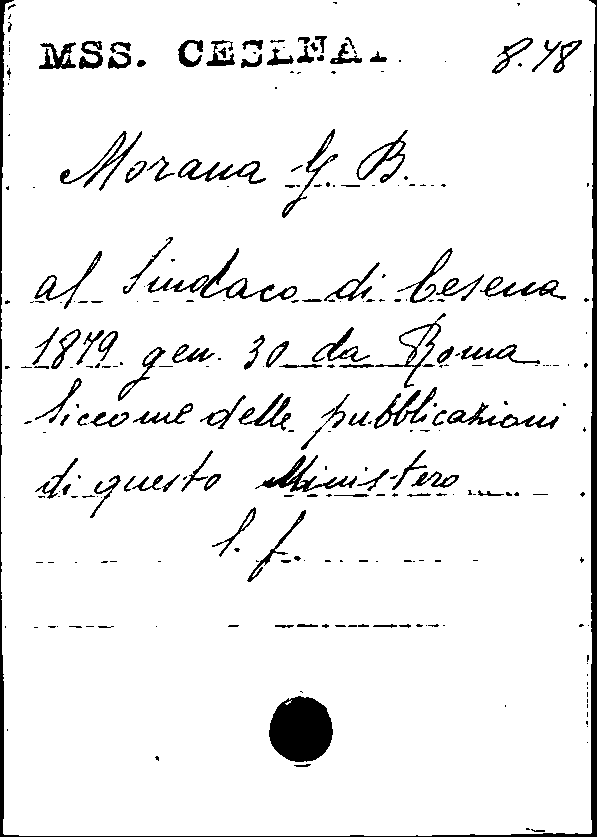 MSS. CESENA.
8.48
Morana G. B.
al Sindaco di Cesena
1879 gen. 30 da Roma
Siccome delle pubblicazioni
di questo Ministero
1. f.